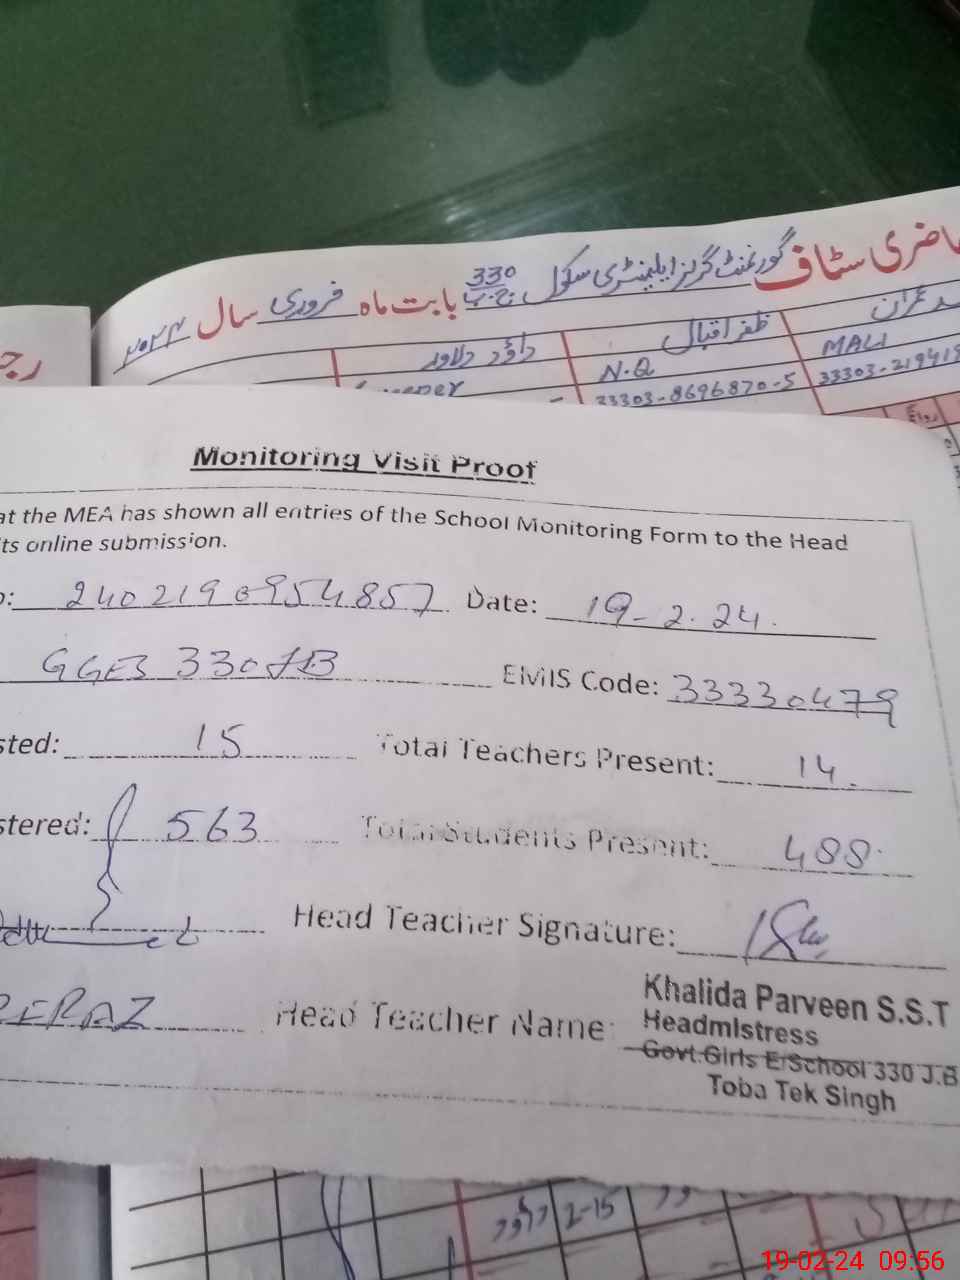 حاضری سٹاف گورنمنٹ گرلز ایلیمنٹری سکول 330 ج.ب بابت ماہ فروری سال ۲۰۲۴
عمران ظفر اقبال داؤد دلاور
MALI N.Q
33303-8696870-5
Monitoring Visit Proof
at the MEA has shown all entries of the School Monitoring Form to the Head
ts online submission.
Date: 19-2.24.
GGES 330 JB EMIS Code: 33330479
sted: 15 Total Teachers Present: 14.
stered: 563 Total Students Present: 488
Head Teacher Signature:
Head Teacher Name: Khalida Parveen S.S.T
Headmistress
Govt.Girls E/School 330 J.B
Toba Tek Singh
داؤد 2-15
19-02-24 09:56